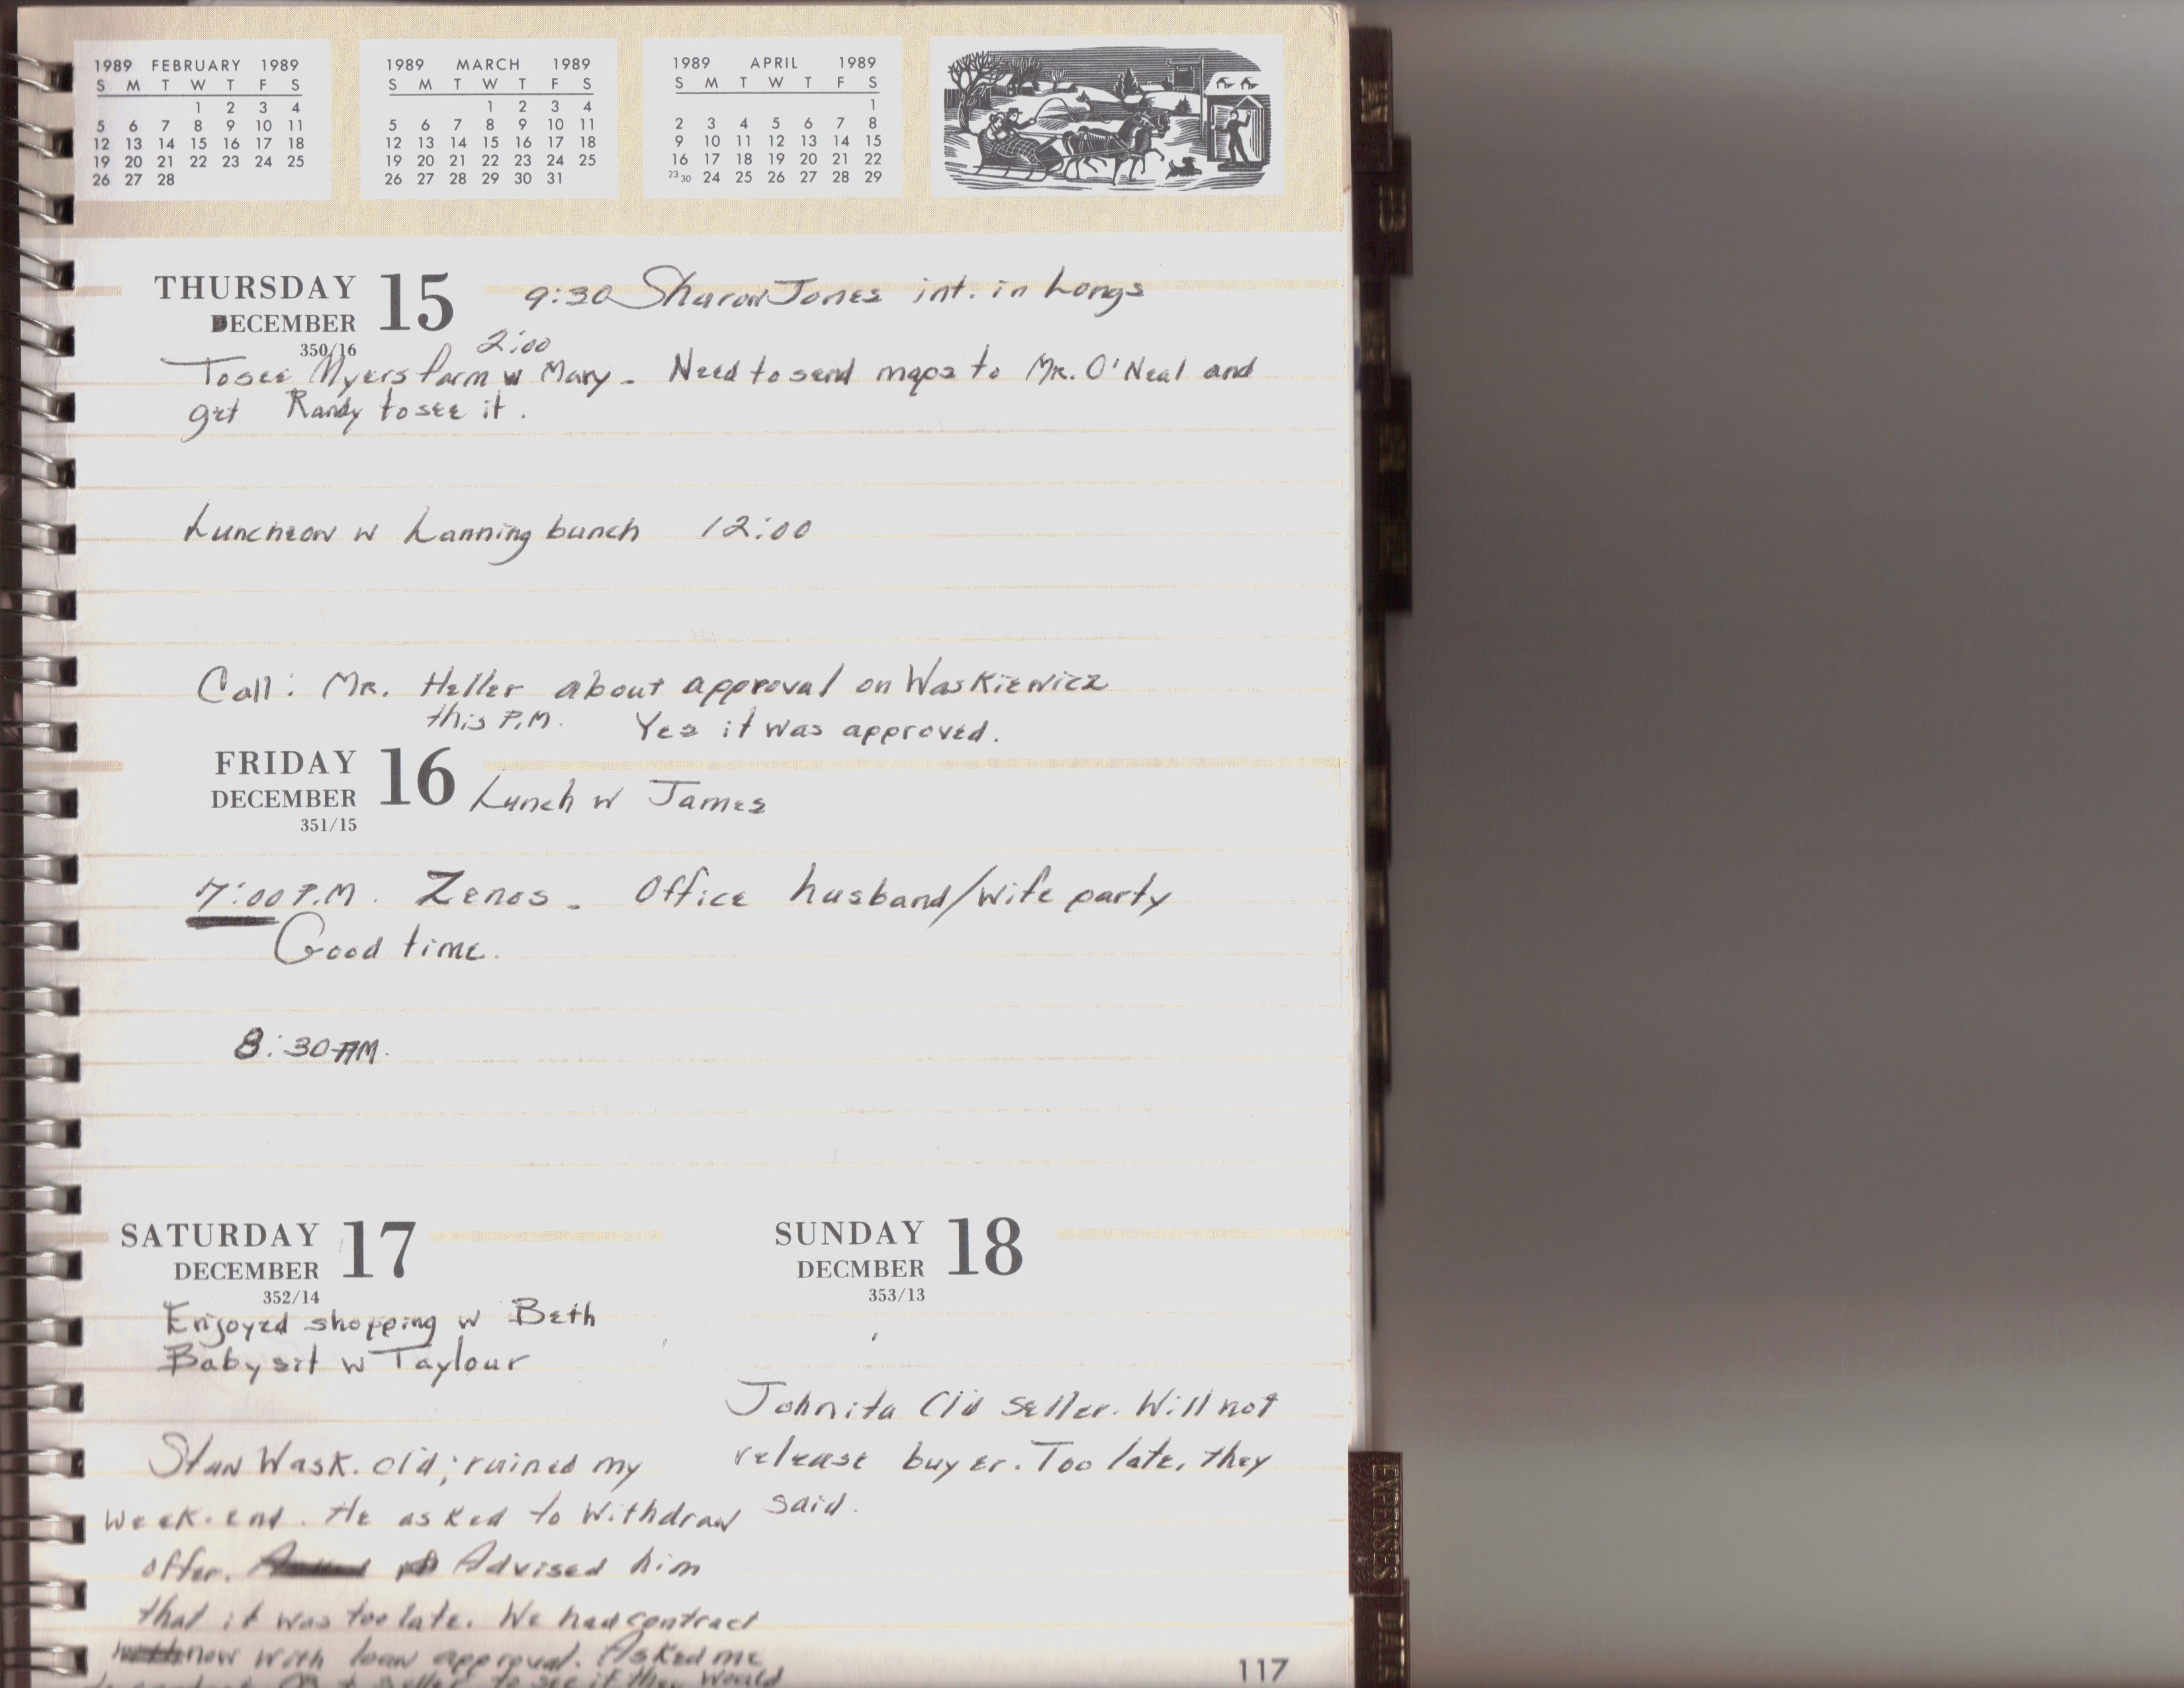 1989 FEBRUARY 1989
S M T W T F S
1 2 3 4
5 6 7 8 9 10 11
12 13 14 15 16 17 18
19 20 21 22 23 24 25
26 27 28
1989 MARCH 1989
S M T W T F S
1 2 3 4
5 6 7 8 9 10 11
12 13 14 15 16 17 18
19 20 21 22 23 24 25
26 27 28 29 30 31
1989 APRIL 1989
S M T W T F S
1
2 3 4 5 6 7 8
9 10 11 12 13 14 15
16 17 18 19 20 21 22
23 30 24 25 26 27 28 29
THURSDAY 15
DECEMBER
350/16
9:30 Sharon Jones int. in Longs
2:00
To see Myers farm w Mary - Need to send maps to Mr. O'Neal and
get Randy to see it.
Luncheon w Lanning bunch 12:00
Call: Mr. Heller about approval on Waskiewicz
this P.M. Yes it was approved.
FRIDAY 16
DECEMBER
351/15
Lunch w James
7:00 P.M. Zenos - Office husband/wife party
Good time.
8:30 AM.
SATURDAY 17
DECEMBER
352/14
Enjoyed shopping w Beth
Babysit w Taylour
Stan Wask. cld; ruined my
week-end. He asked to withdraw
offer. Advised him
that it was too late. We had contract
now with loan approval. Asked me
seller to see if they would
SUNDAY 18
DECMBER
353/13
Johnita Cld seller. Will not
release buyer. Too late, they
said.
117
EXPENSES
DATA